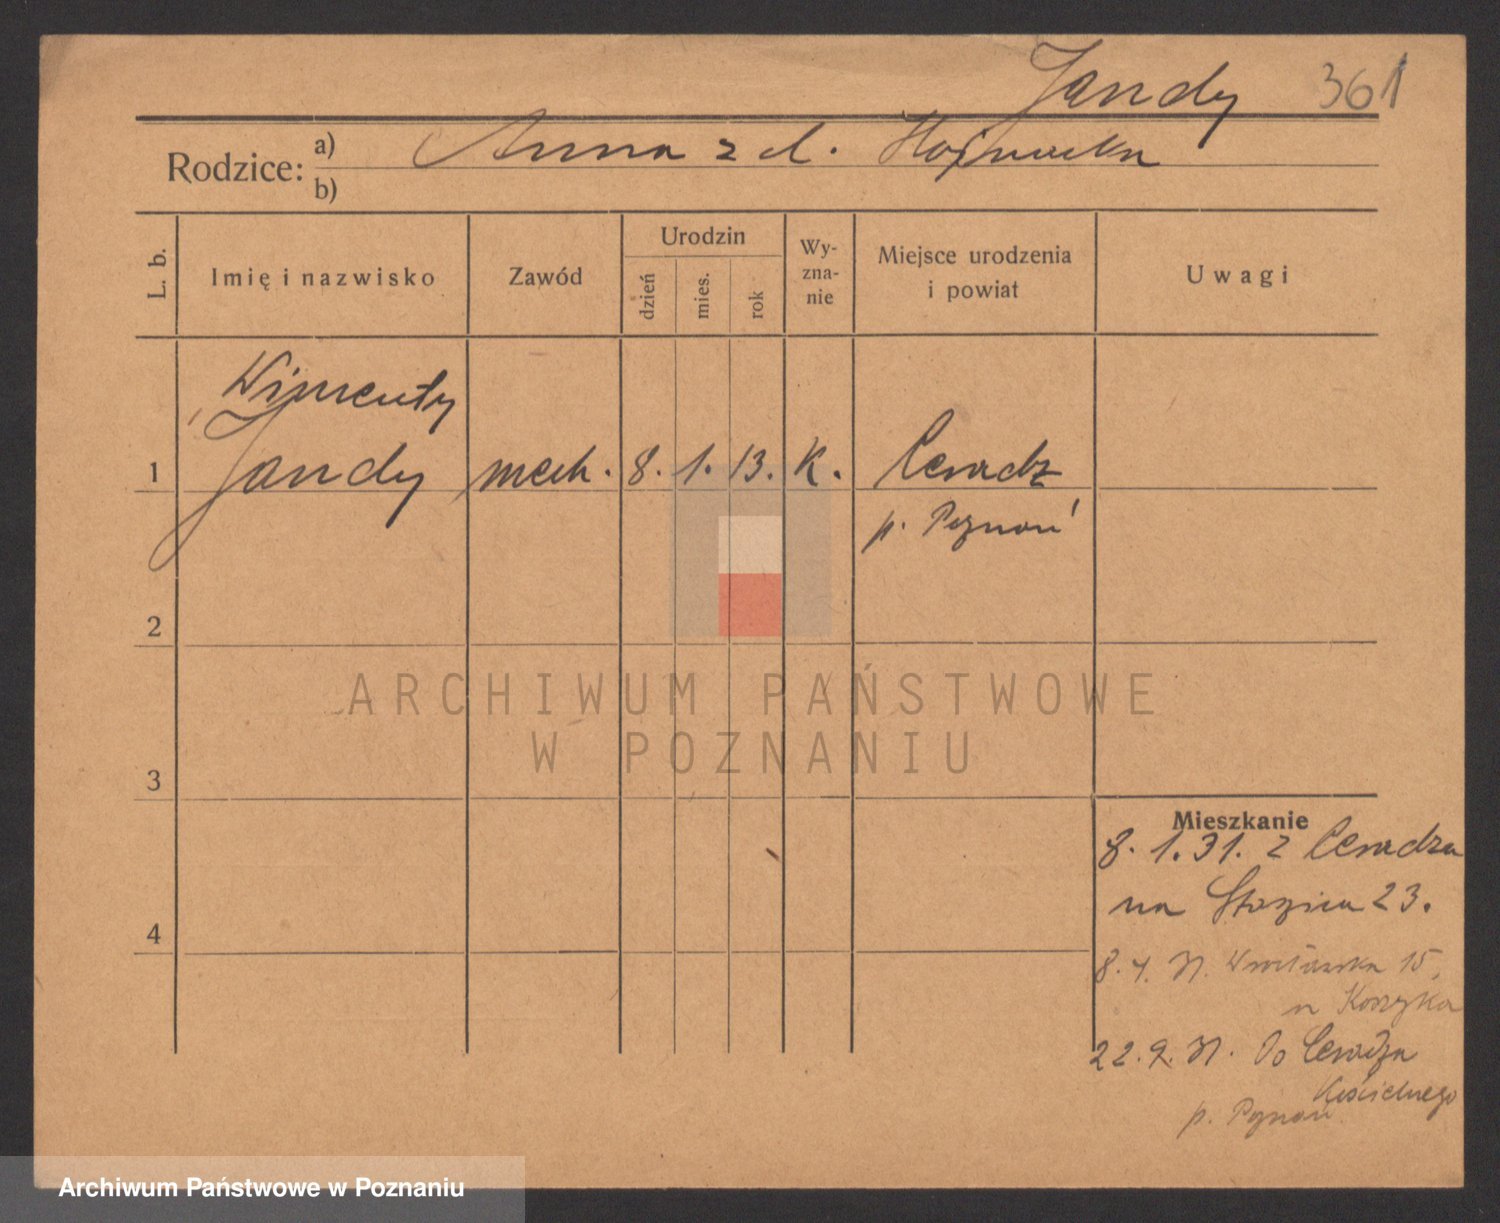 Jandy 361
Rodzice: a) Anna z d.
b)
L. b.
Imię i nazwisko
Zawód
Urodzin
dzień
mies.
rok
Wy-
zna-
nie
Miejsce urodzenia
i powiat
Uwagi
Wincenty
1 Jandy mech. 8. 1. 13. K. Ceradz
p. Poznań
2
3
4
Mieszkanie
8. 1. 31. z Ceradza
na Staszica 23.
8. 4. 31. Wrocławska 15,
u Koszyka
22. 9. 31. Do Ceradza
Kościelnego
p. Poznań
ARCHIWUM PAŃSTWOWE
W POZNANIU
Archiwum Państwowe w Poznaniu